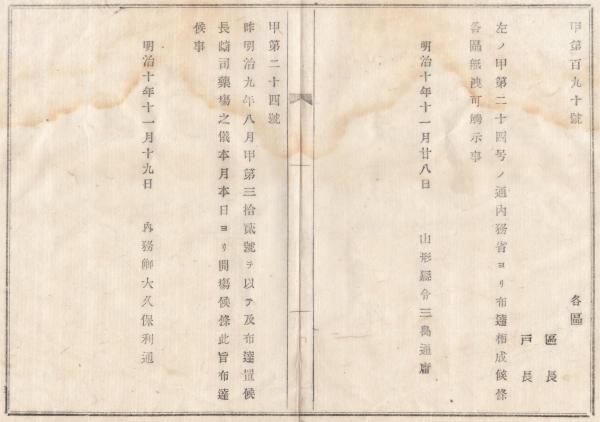 甲第百九十號
各區
區長
戸長
左ノ甲第二十四号ノ通内務省ヨリ布達相成候條
各區無洩可觸示事
明治十年十一月廿八日　山形縣令三島通庸
甲第二十四號
昨明治九年八月甲第三拾貳號ヲ以テ及布達置候
長崎司藥場之儀本月本日ヨリ開場候條此旨布達
候事
明治十年十一月十九日　内務卿大久保利通